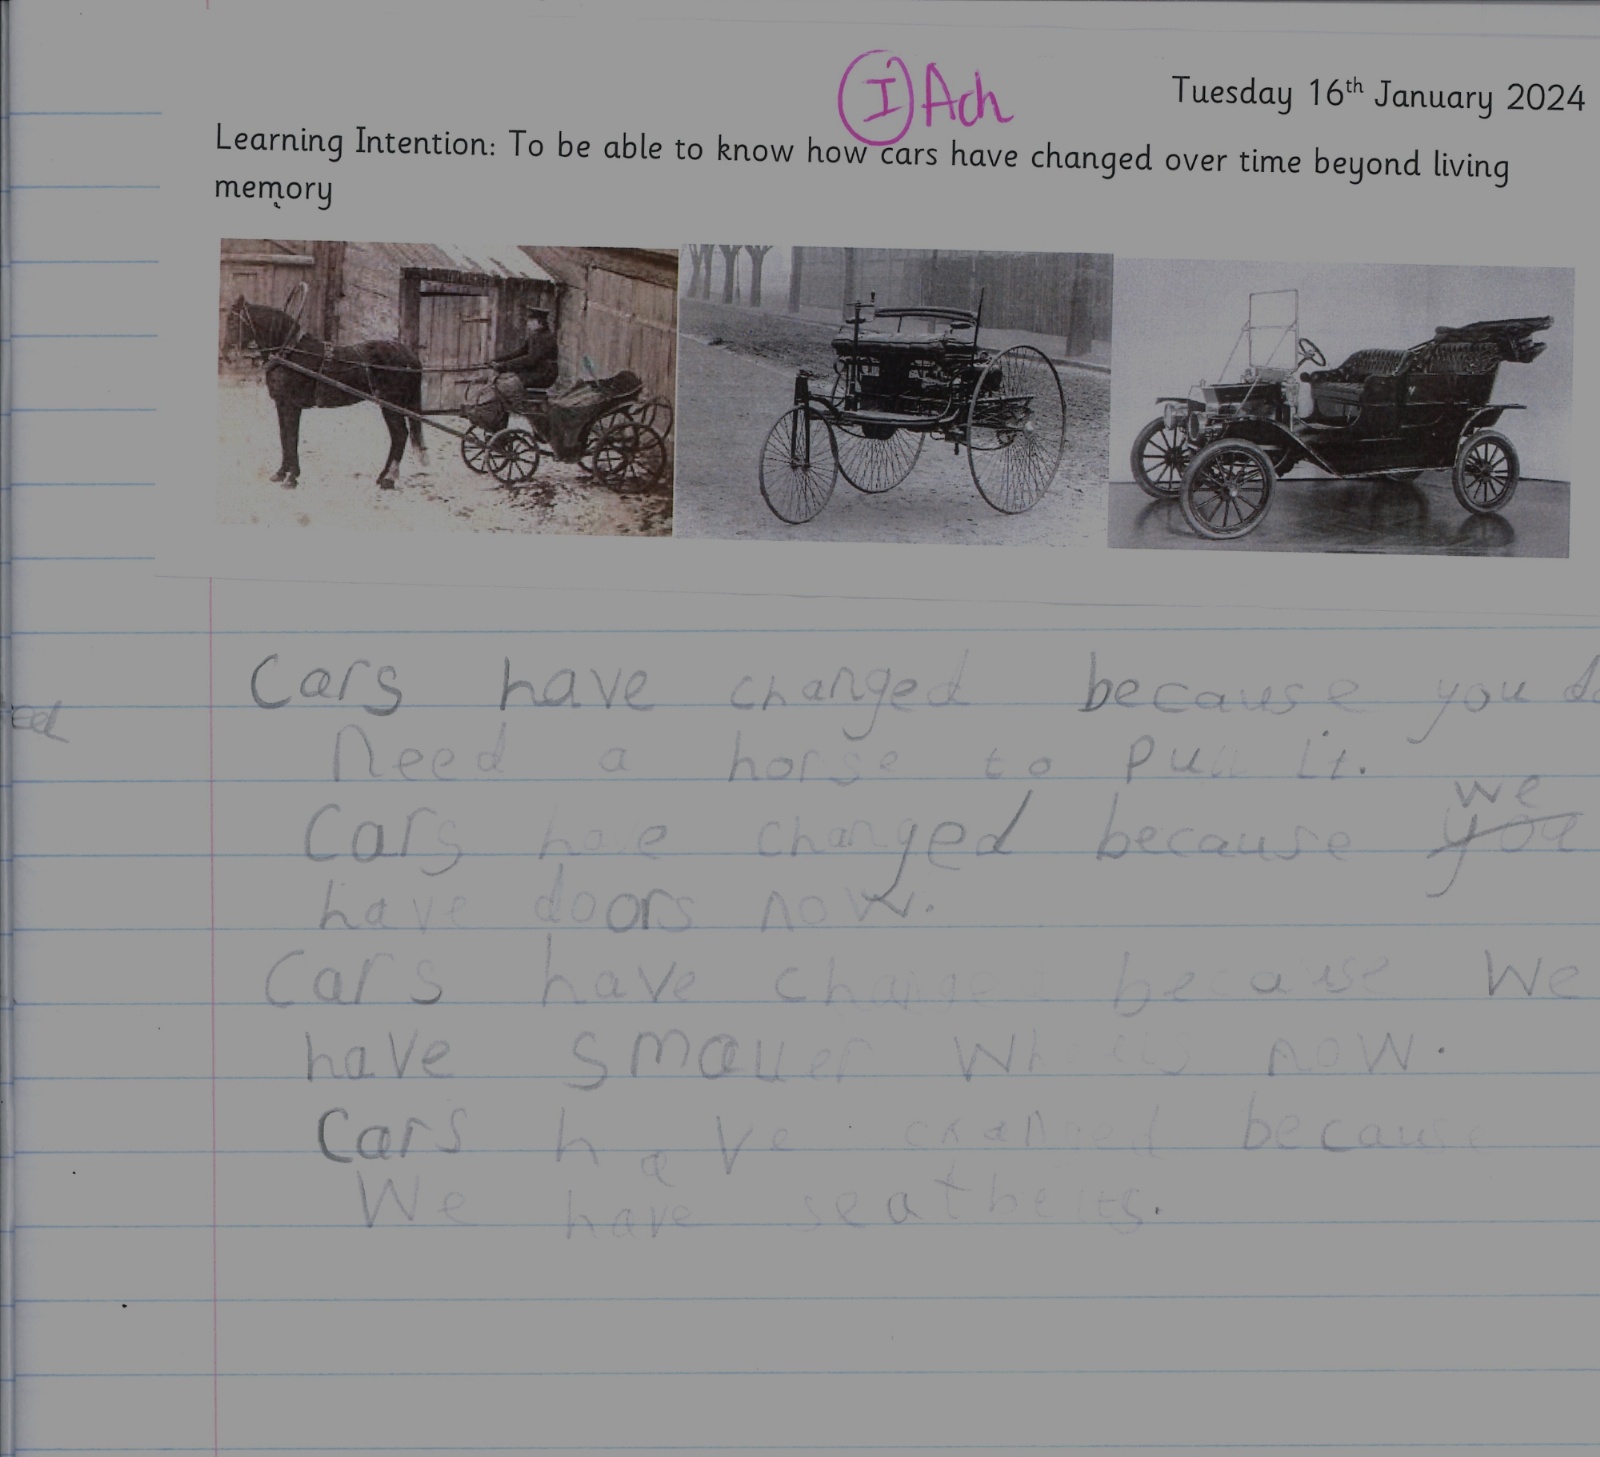 I Ach
Tuesday 16th January 2024
Learning Intention: To be able to know how cars have changed over time beyond living
memory
Cars have changed because you
need a horse to pull it.
Cars have changed because we you
have doors now.
Cars have changed because we
have smaller wheels now.
Cars have changed because
We have seatbelts.